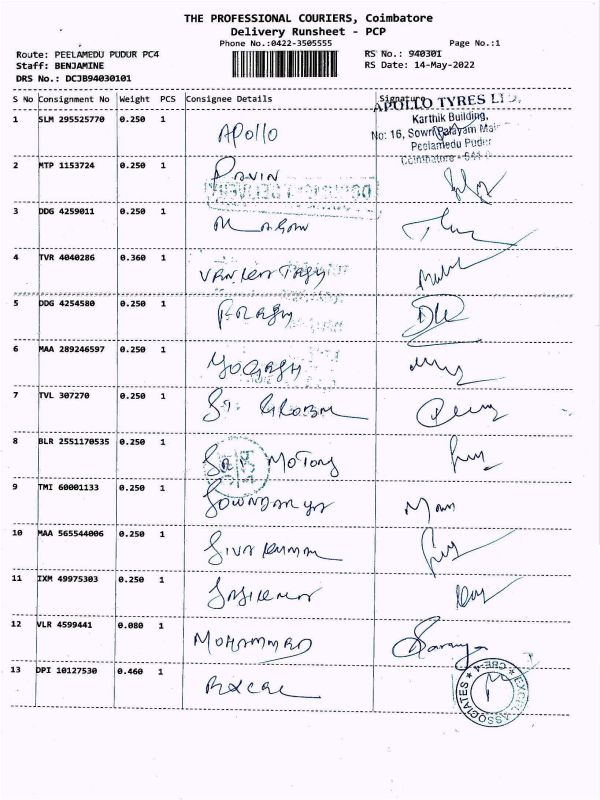 THE PROFESSIONAL COURIERS, Coimbatore
Delivery Runsheet - PCP
Phone No.:0422-3505555
Page No.:1
Route: PEELAMEDU PUDUR PC4
RS No.: 940301
Staff: BENJAMINE
RS Date: 14-May-2022
DRS No.: DCJB94030101
S No Consignment No Weight PCS Consignee Details Signature
APOLLO TYRES LTD,
1 SLM 295525770 0.250 1 APOllO
Karthik Building,
No: 16, Sowripalayam Main
Peelamedu Pudur
Coimbatore - 641 0
2 MTP 1153724 0.250 1 PAVIN
3 DDG 4259011 0.250 1
4 TVR 4040286 0.360 1
5 DDG 4254580 0.250 1
6 MAA 289246597 0.250 1 YOGASH
7 TVL 307270 0.250 1 ST. GLOBAL
8 BLR 2551170535 0.250 1 SRI MOTORS
9 TMI 60001133 0.250 1 SOWNDARYA
10 MAA 565544006 0.250 1 SIVA KUMAR
11 IXM 49975303 0.250 1
12 VLR 4599441 0.080 1 MOHAMMED Saranya
13 DPI 10127530 0.460 1 EXCEL
EXCEL ASSOCIATES ★ CBE-4 ★